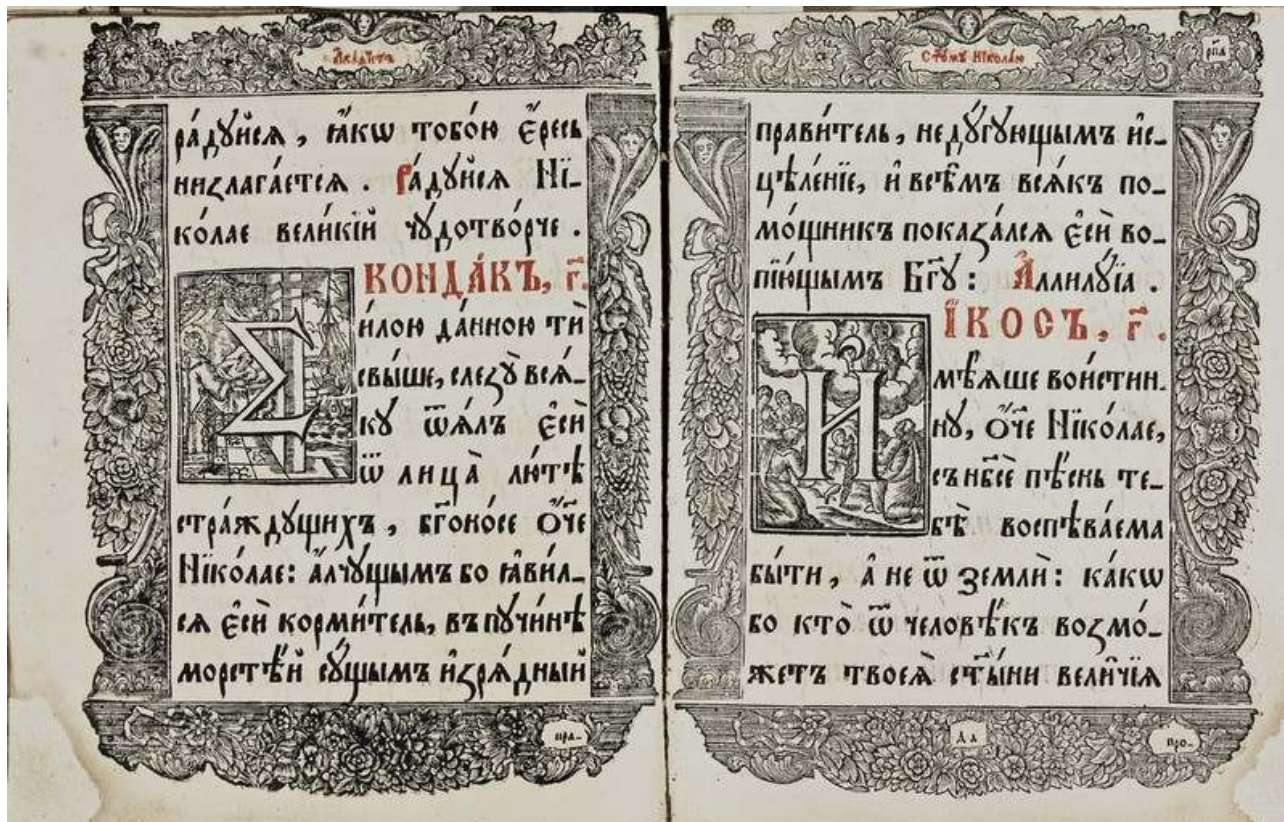 Акаѳистъ
ра́дꙋйсѧ , ꙗ҆́кѡ тобо́ю є҆́ресь
низлага́етсѧ . Ра́дꙋйсѧ Нї-
ко́лае вели́кїй чꙋдотво́рче .
КОНДА́КЪ, г҃.
С
и́лою да́нною тѝ
свы́ше, сле́зꙋ всѧ́-
кꙋ ѿѧ́лъ є҆сѝ
ѿ лица̀ лю́тѣ
стра́ждꙋщихъ , бг҃оно́се ѻ҆́ч҃е
Нїко́лае: а҆́лчꙋщымъ бо ꙗ҆ви́л-
сѧ є҆сѝ корми́тель, въ пꙋчи́нѣ
морстѣ́й сꙋ́щымъ и҆зрѧ́дный
пра-
ст҃омꙋ Нїкола́ю
рп҃а
прави́тель , недꙋ́гꙋющымъ и҆с-
цѣле́нїе, и҆ всѣ̑мъ всѧ́къ по-
мо́щникъ показа́лсѧ є҆сѝ во-
пїю́щымъ Бг҃ꙋ : А҆ллилꙋ́їа .
І҆́КОСЪ , г҃ .
И
мѣ́ѧше вои́стин-
нꙋ, ѻ҆́ч҃е Нїко́лае,
съ нб҃сѐ пѣ́снь те-
бѣ̀ воспѣва́ема
бы́ти , а҆ не ѿ землѝ : ка́кѡ
бо кто̀ ѿ человѣ̑къ возмо́-
жетъ твоеѧ̀ ст҃ы́ни вели̑чїѧ
Аа
про-